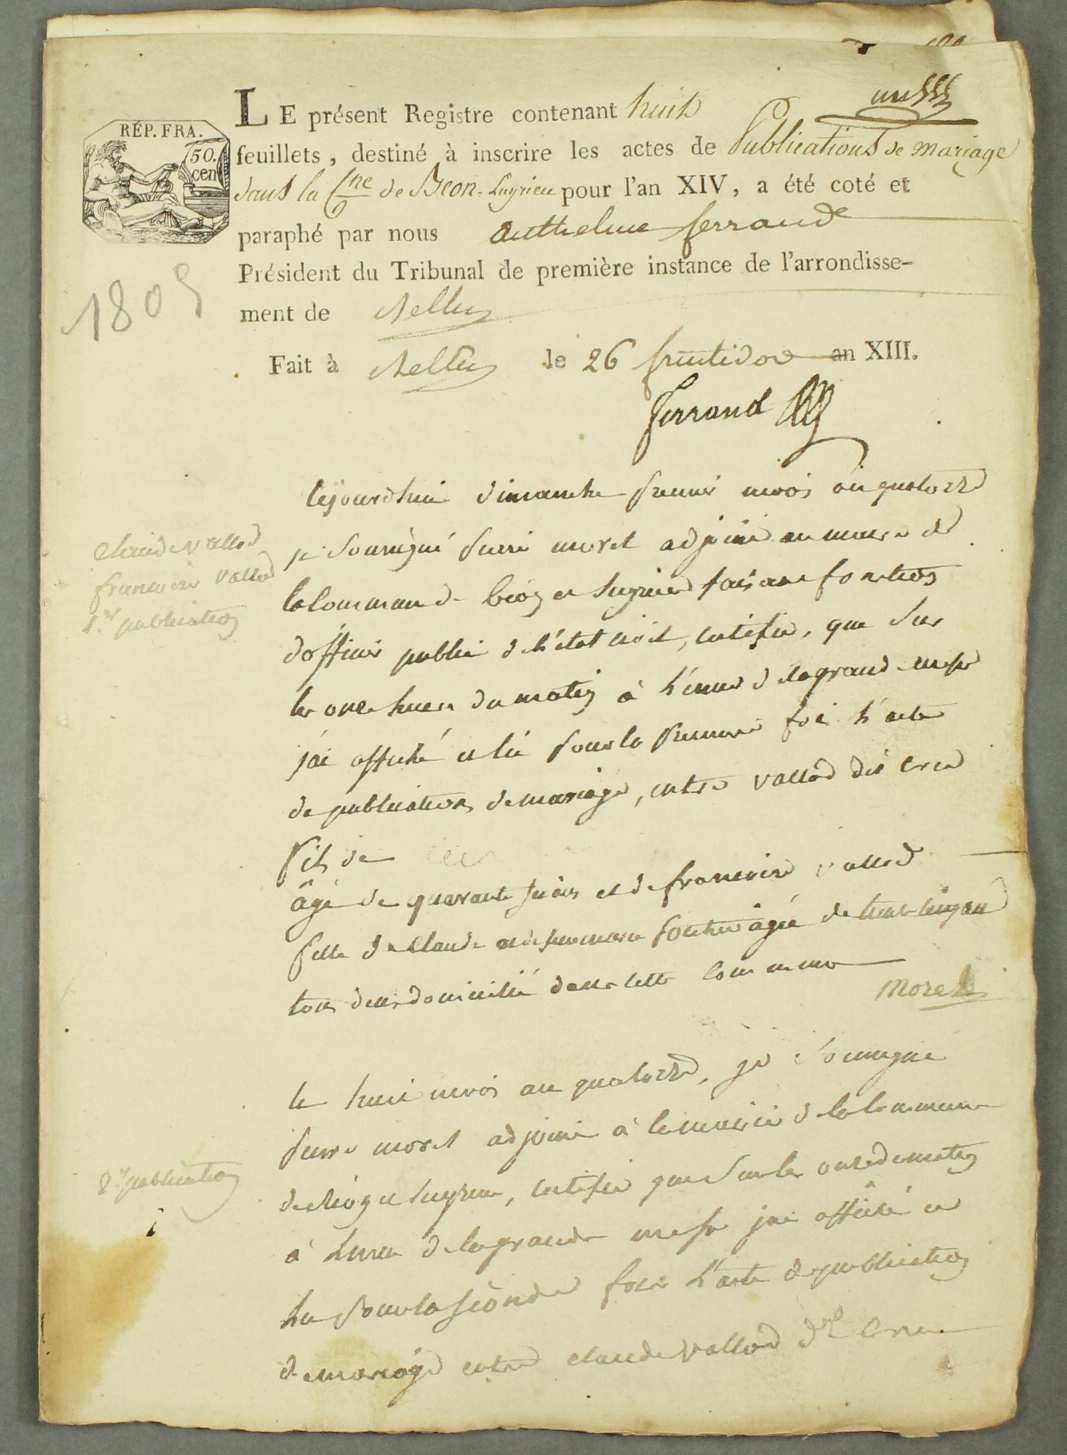 un
LE présent Registre contenant huit
feuillets, destiné à inscrire les actes de Publications de mariage
dans la Cne de Béon-Luyrieu pour l'an XIV, a été coté et
paraphé par nous Anthelme ferrand
Président du Tribunal de première instance de l'arrondisse-
ment de Belley
Fait à Belley le 26 fructidor an XIII.
ferrand
RÉP. FRA.
50.
cen
1805
claude vallod
francoise vallod
1.re publication
cejourdhui dimanche premier nivos an quatorze
je soussigné pierre moret adjoint au maire de
la commune de béon et luyrieu faisant fonction
dofficier public de l'état civil, certifie, que sur
les onze heures du matin à l'issue de la grande messe
jai affiché et lu pour la premiere fois l'acte
de publication de mariage, entre vallod dit
fils de
âgé de quarante ans et de francoise vallod
fille de claude et de âgée de trente cinq ans
tous deux domicilié dans cette commune
Moret
2.de publication
le huit nivos an quatorze, je soussigné
pierre moret adjoint à la mairie de la commune
de béon et luyrieu, certifie que sur les onze du matin
à l'issue de la grande messe jai affiché et
lu pour la seconde fois l'acte de publication
de mariage entre claude vallod dit